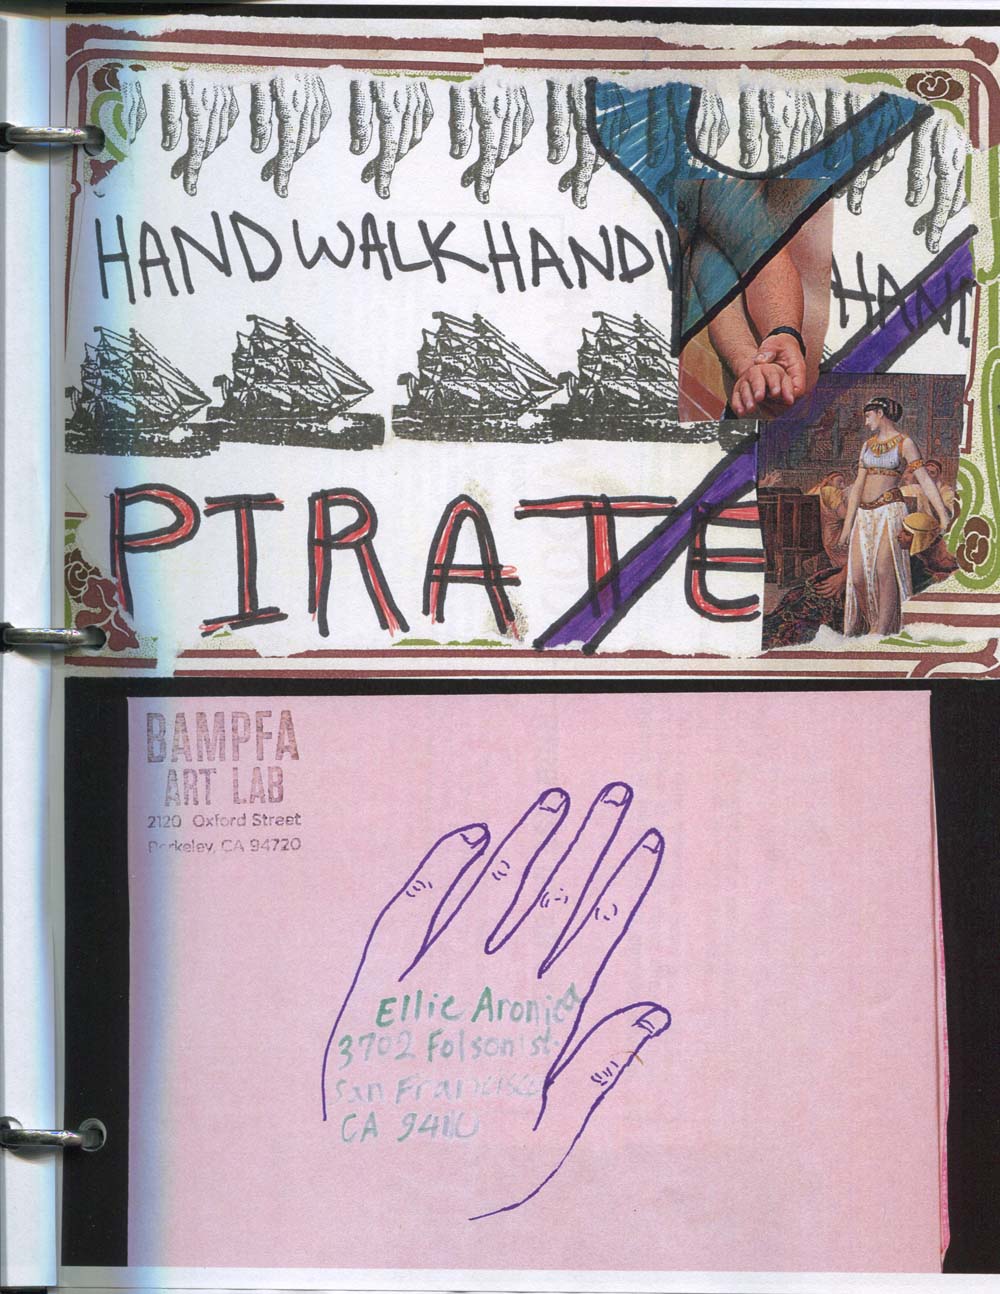 HAND WALK HAND HAN
PIRATE
BAMPFA
ART LAB
2120 Oxford Street
Berkeley, CA 94720
Ellie Aronica
3702 Folsom st.
San Francisco
CA